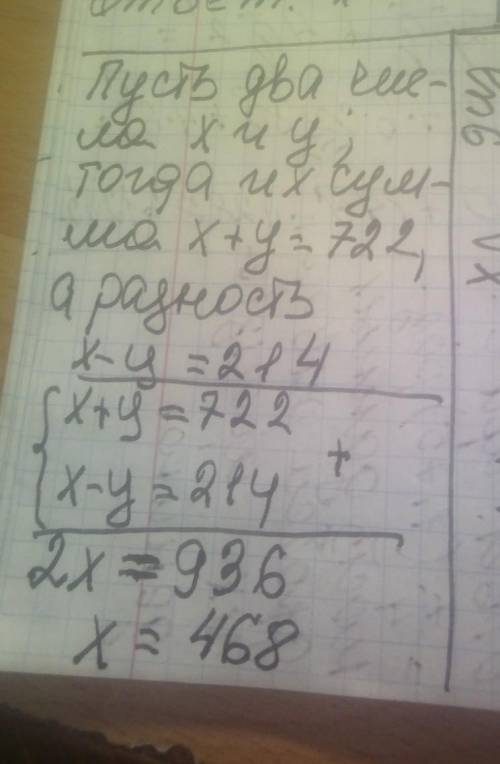 Ответ.
Пусть два чис-
ла x и y,
тогда их сум-
ма x+y=722,
а разность
x-y=214
x+y=722
+
x-y=214
2x=936
x=468